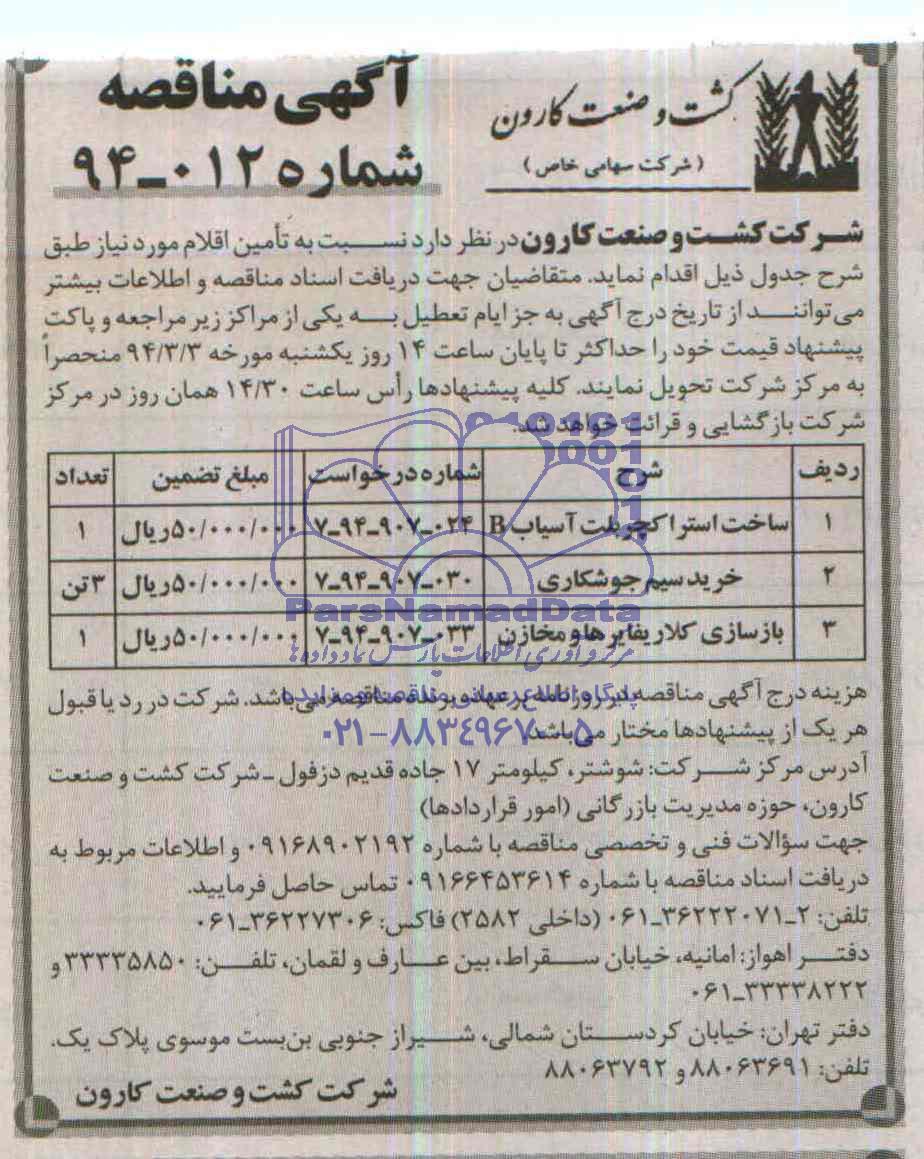 کشت و صنعت کارون
(شرکت سهامی خاص)
آگهی مناقصه
شماره ۰۱۲ـ۹۴
شرکت کشت و صنعت کارون در نظر دارد نسبت به تأمین اقلام مورد نیاز طبق
شرح جدول ذیل اقدام نماید. متقاضیان جهت دریافت اسناد مناقصه و اطلاعات بیشتر
می‌توانند از تاریخ درج آگهی به جز ایام تعطیل به یکی از مراکز زیر مراجعه و پاکت
پیشنهاد قیمت خود را حداکثر تا پایان ساعت ۱۴ روز یکشنبه مورخه ۹۴/۳/۳ منحصراً
به مرکز شرکت تحویل نمایند. کلیه پیشنهادها رأس ساعت ۱۴/۳۰ همان روز در مرکز
شرکت بازگشایی و قرائت خواهد شد.
ردیف شرح شماره درخواست مبلغ تضمین تعداد
۱ ساخت استراکچر بلت آسیاب B ۰۲۴ـ۹۰۷ـ۹۴ـ۷ ۵۰/۰۰۰/۰۰۰ ریال ۱
۲ خرید سیم جوشکاری ۰۳۰ـ۹۰۷ـ۹۴ـ۷ ۵۰/۰۰۰/۰۰۰ ریال ۳ تن
۳ بازسازی کلاریفایرها و مخازن ۰۳۳ـ۹۰۷ـ۹۴ـ۷ ۵۰/۰۰۰/۰۰۰ ریال ۱
ParsNamadData
هزینه درج آگهی مناقصه در روزنامه بر عهده برنده مناقصه می‌باشد. شرکت در رد یا قبول
هر یک از پیشنهادها مختار می‌باشد.
۰۲۱-۸۸۳۴۹۶۷۰-۵
آدرس مرکز شرکت: شوشتر، کیلومتر ۱۷ جاده قدیم دزفول ـ شرکت کشت و صنعت
کارون، حوزه مدیریت بازرگانی (امور قراردادها)
جهت سؤالات فنی و تخصصی مناقصه با شماره ۰۹۱۶۸۹۰۲۱۹۲ و اطلاعات مربوط به
دریافت اسناد مناقصه با شماره ۰۹۱۶۶۴۵۳۶۱۴ تماس حاصل فرمایید.
تلفن: ۲ـ۳۶۲۲۲۰۷۱ـ۰۶۱ (داخلی ۲۵۸۲) فاکس: ۳۶۲۲۷۳۰۶ـ۰۶۱
دفتر اهواز: امانیه، خیابان سقراط، بین عارف و لقمان، تلفن: ۳۳۳۳۵۸۵۰ و
۳۳۳۳۸۲۲۲ـ۰۶۱
دفتر تهران: خیابان کردستان شمالی، شیراز جنوبی بن‌بست موسوی پلاک یک.
تلفن: ۸۸۰۶۳۶۹۱ و ۸۸۰۶۳۷۹۲
شرکت کشت و صنعت کارون